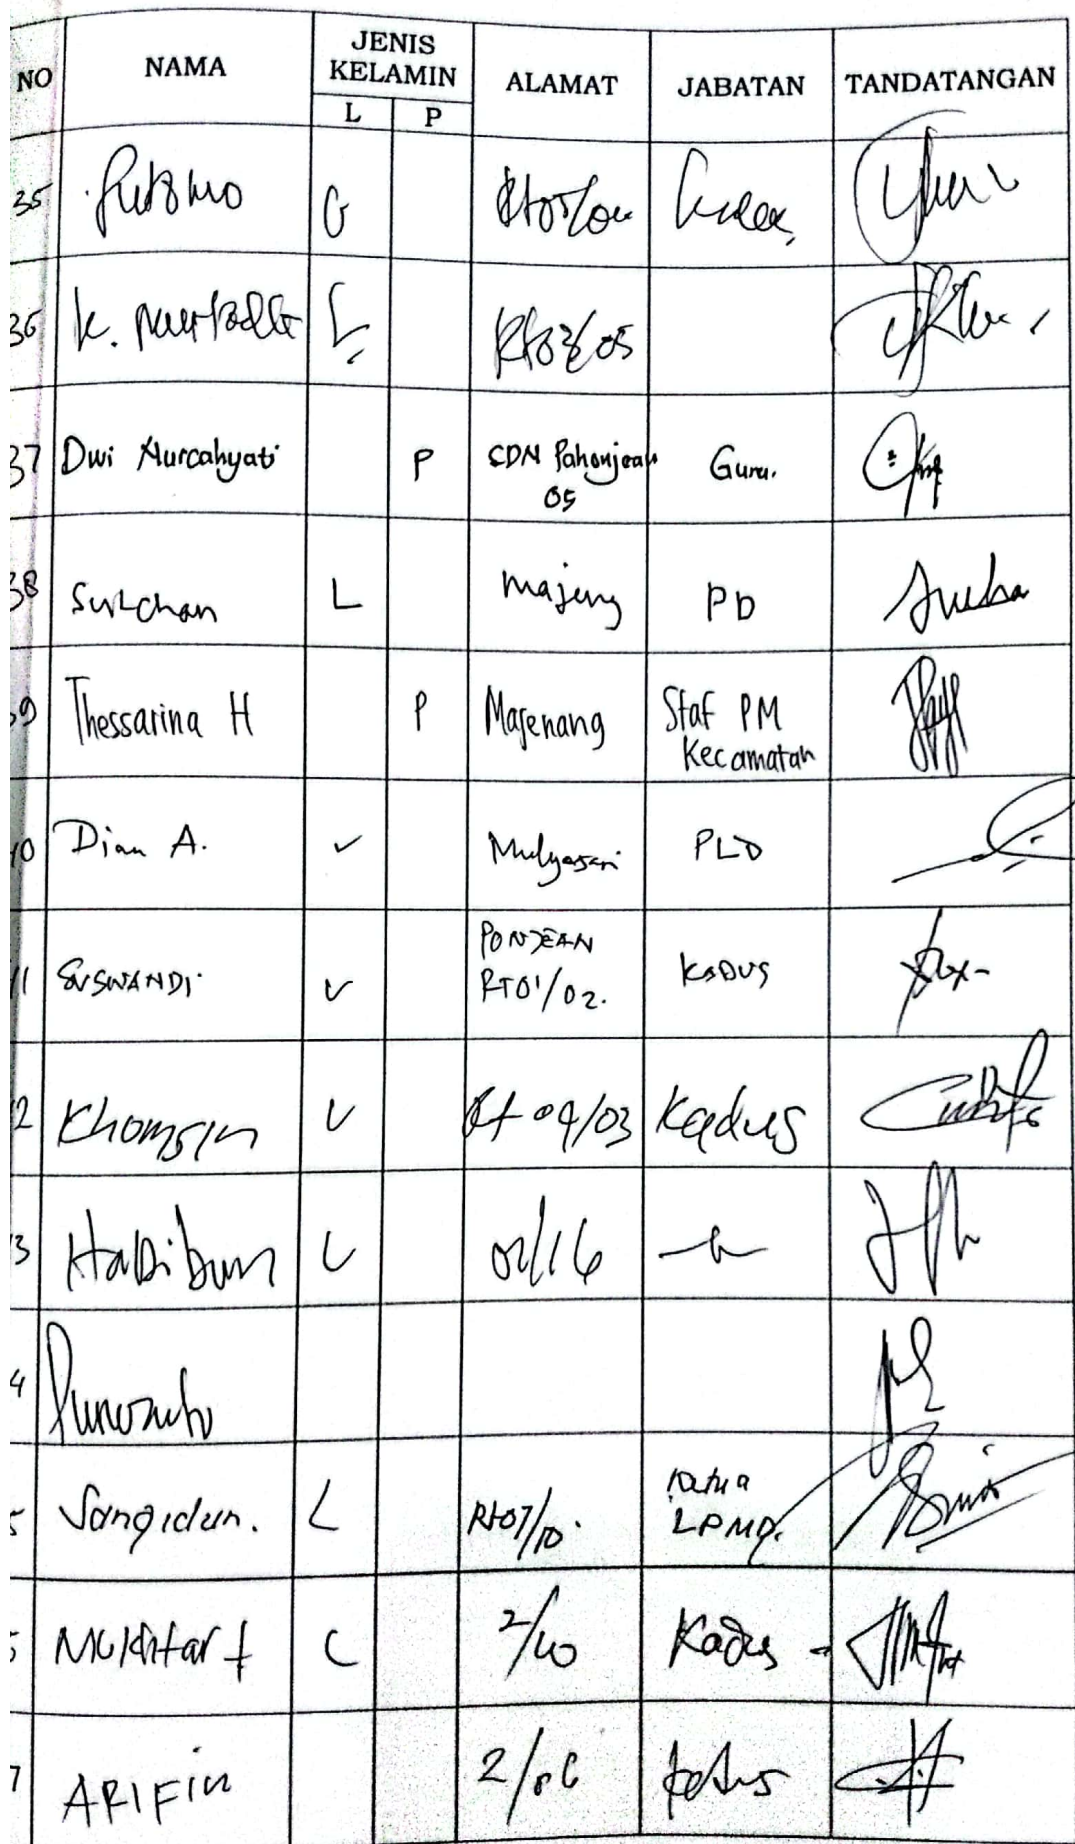 NO NAMA JENIS KELAMIN ALAMAT JABATAN TANDATANGAN
L P
35 Sutomo
36 K. Rt03/05
37 Dwi Nurcahyati P SDN Pahonjean 05 Guru.
38 Sulchan L Majeng PD
39 Thessarina H P Majenang Staf PM Kecamatan
Dian A. ✓ Mulyasari PLD
SUSWANDI ✓ PONJEAN RT01/02. KADUS
2 Khomsin L Rt 04/03 Kadus
3 Habibun L 02/16
4 Purwanto
Sangidun. L Rt07/10 Ketua LPMD.
Mukhtar f L 2/10 Kadus
7 ARIFin 2/06 Kadus